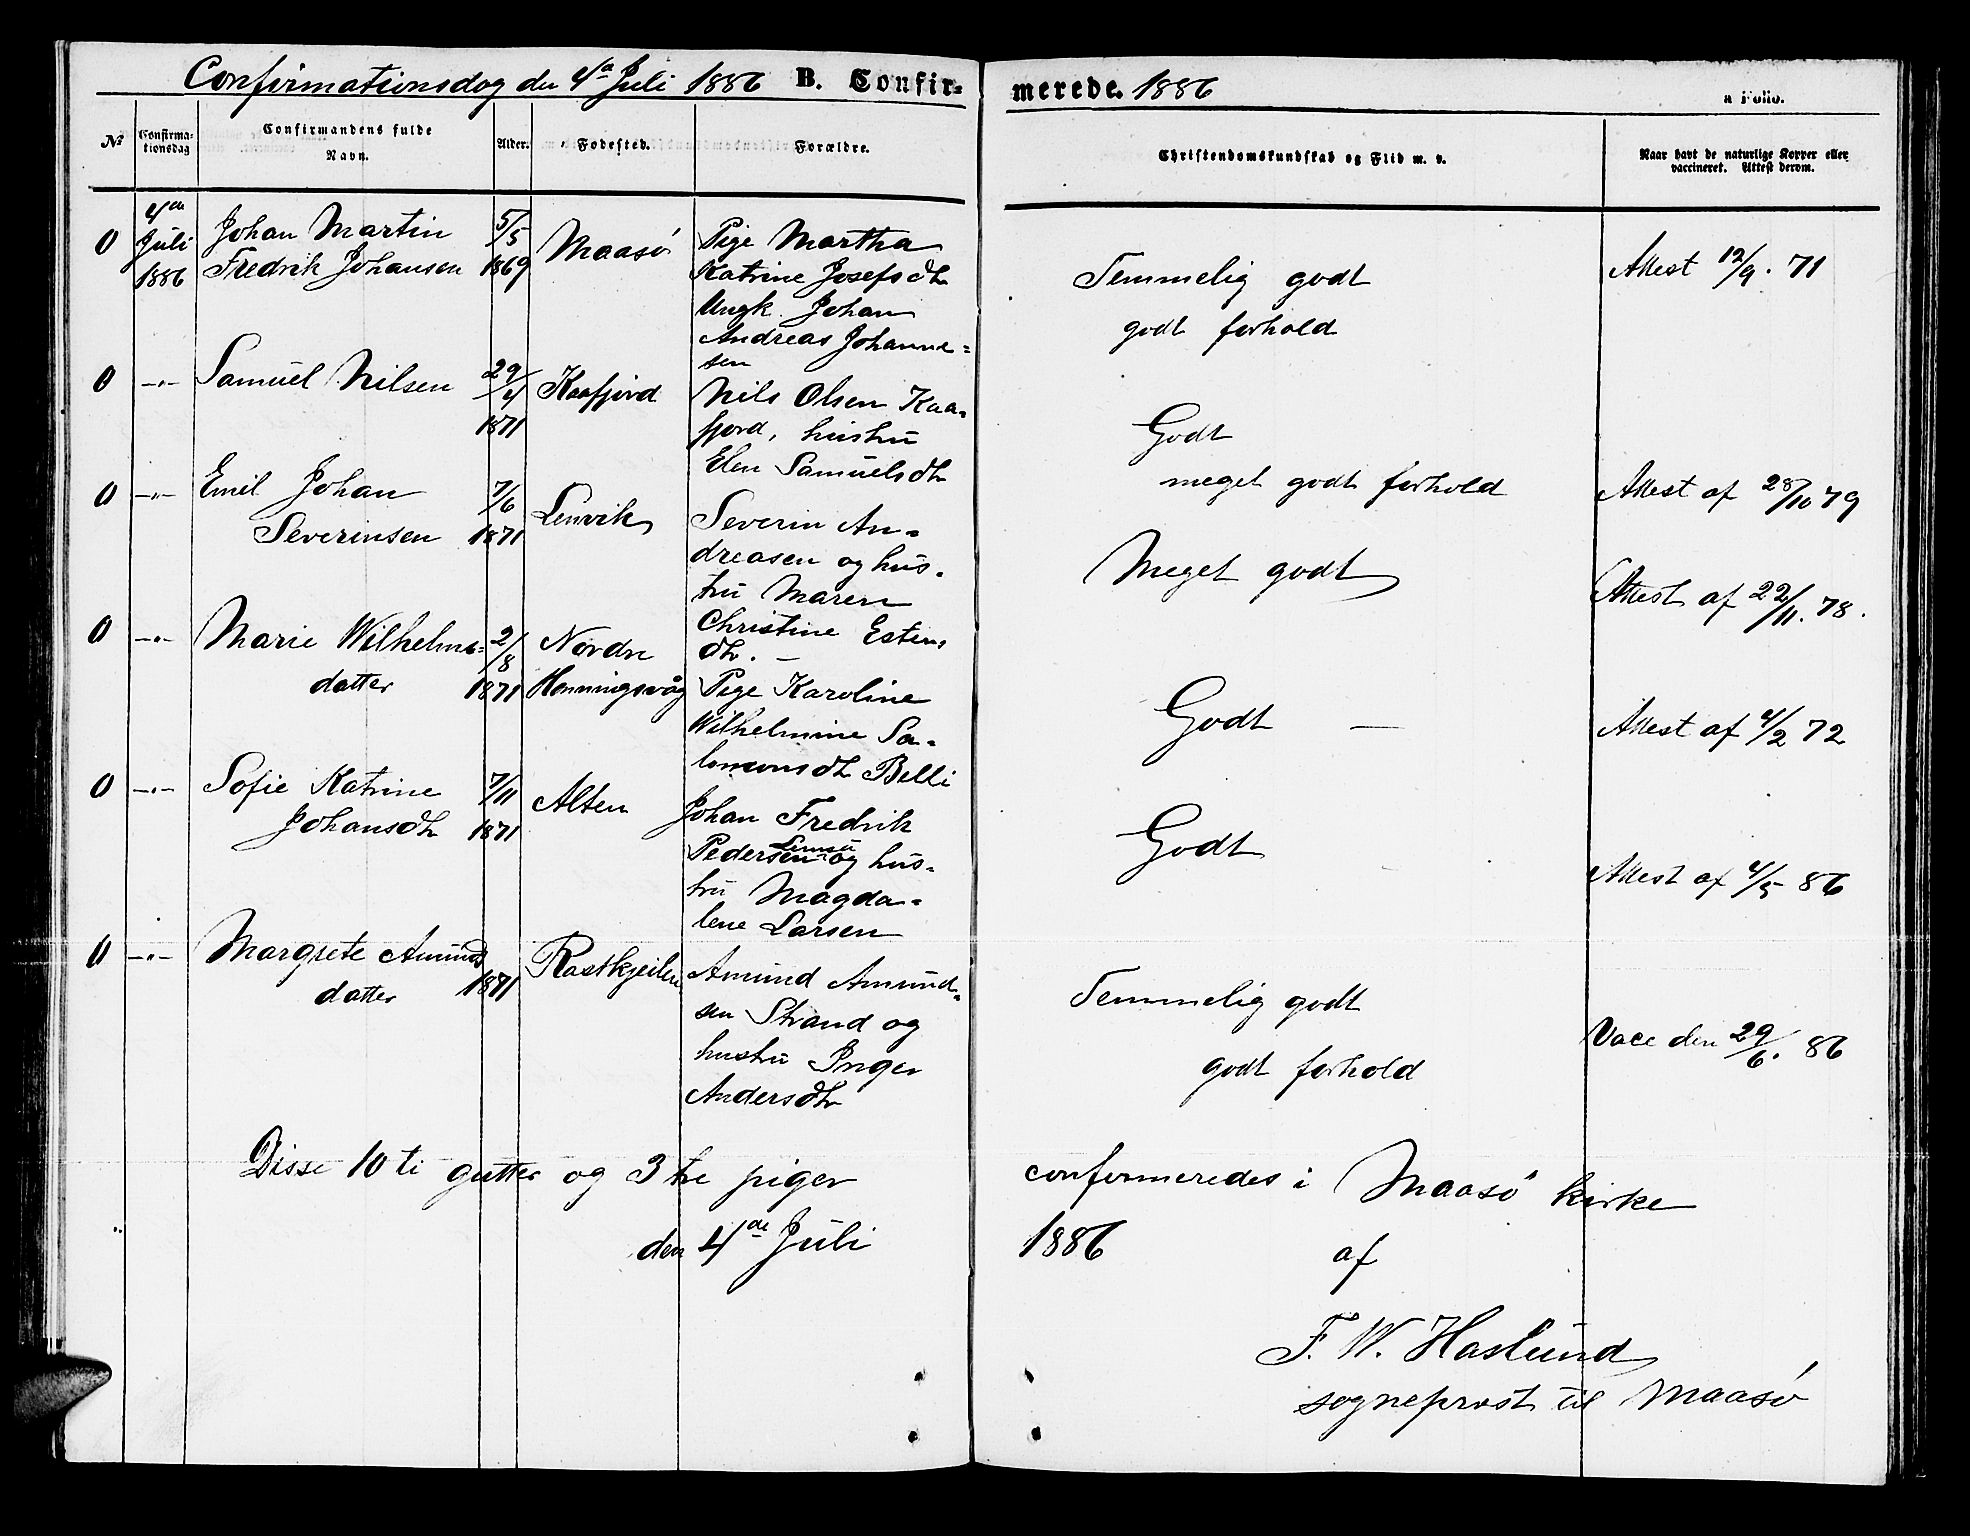 Confirmationsdag den 4de Juli 1886 B. Confir-
merede. 1886
a Folio.
No
Confirma-
tionsdag
Confirmandens fulde
Navn.
Alder.
Fødested.
Forældre.
Christendomskundskab og Flid m. v.
Naar havt de naturlige Kopper eller
vaccineret. Attest derom.
0
4de
Juli
1886
Johan Martin
Fredrik Johansen
5/5
1869
Maasø
Pige Martha
Katrine Josefsdtr
Ungk. Johan
Andreas Johanne=
sen
Temmelig godt
godt forhold
Attest 12/9. 71
0 -"-
Samuel Nilsen
29/4
1871
Kaafjord
Nils Olsen Kaa-
fjord, hustru
Elen Samuelsdtr
Godt
meget godt forhold
Attest af 28/10 79
0 -"-
Emil Johan
Severinsen
7/6
1871
Lenvik
Severin An-
dreasen og hus-
tru Maren
Christine Estens
dtr. -
Meget godt
Attest af 22/11. 78.
0 -"-
Marie Wilhelms=
datter
2/8
1871
Nordre
Honningsvåg
Pige Karoline
Wilhelmine Sa-
lomonsdtr Belli
Godt —
Attest af 4/2 72
0 -"-
Sofie Katrine
Johansdtr
7/11
1871
Alten
Johan Fredrik
Pedersen og hus-
tru Magda-
lene Larsen
Godt
Attest af 4/5 86
0 -"-
Margrete Amunds
datter
1871
Amund Amund-
sen Strand og
hustru Inger
Andersdtr
Temmelig godt
godt forhold
Vacc den 29/6. 86
Disse 10 ti gutter og 3 tre piger
confirmeredes i Maasø kirke
den 4de Juli
1886 af
F. W. Haslund
sogneprest til Maasø